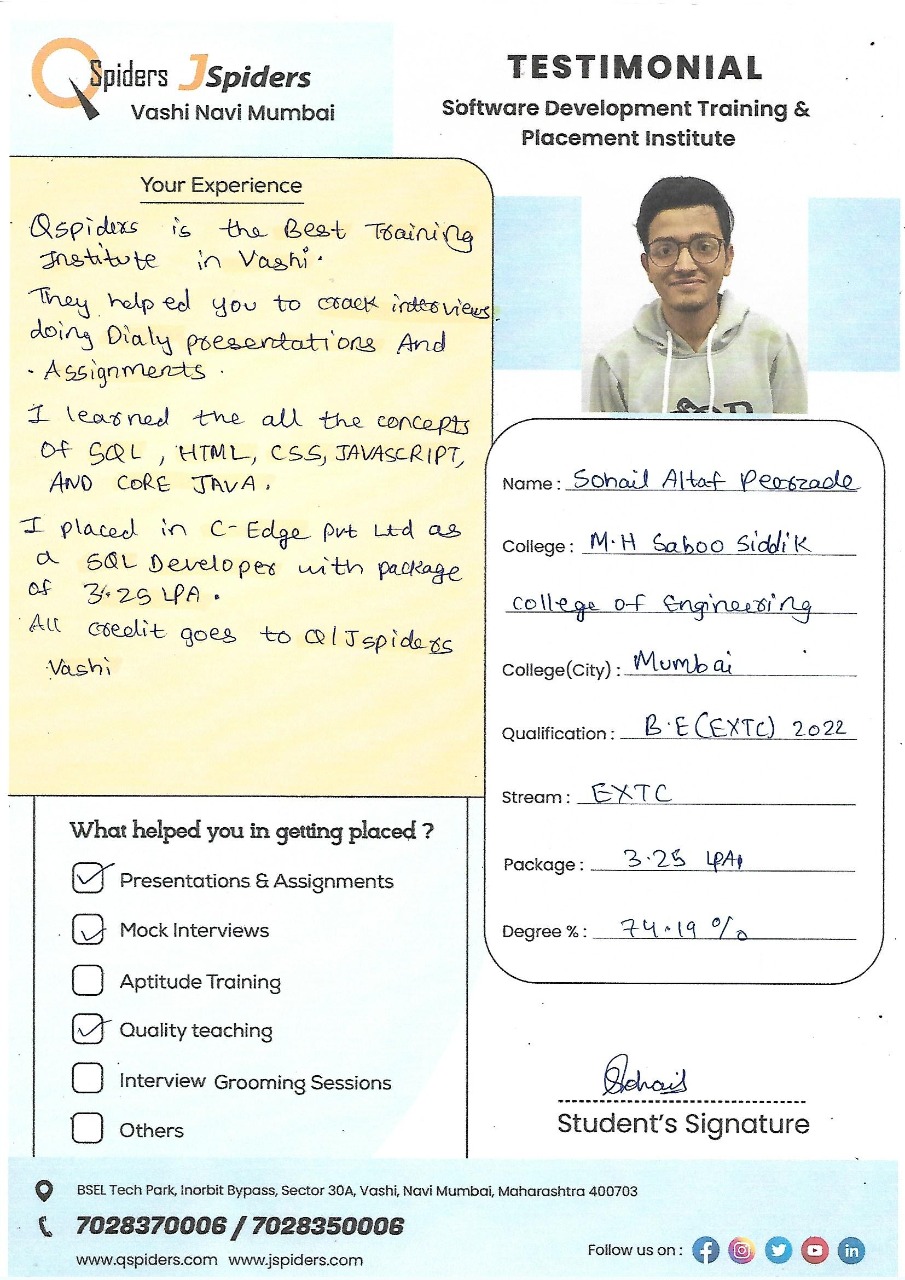 QSpiders JSpiders
Vashi Navi Mumbai
TESTIMONIAL
Software Development Training &
Placement Institute
Your Experience
Qspiders is the Best Training
Institute in Vashi.
They helped you to crack interviews
doing Dialy presentations And
Assignments.
I learned the all the concepts
Of SQL, HTML, CSS, JAVASCRIPT,
AND CORE JAVA.
I placed in C-Edge Pvt Ltd as
a SQL Developer with package
of 3.25 LPA.
All credit goes to Q/Jspiders
Vashi
Name : Sohail Altaf Peerzade
College : M.H Saboo Siddik
college of Engineering
College(City) : Mumbai
Qualification : B.E(EXTC) 2022
Stream : EXTC
Package : 3.25 LPA
Degree % : 74.19 %
What helped you in getting placed ?
Presentations & Assignments
Mock Interviews
Aptitude Training
Quality teaching
Interview Grooming Sessions
Others
Sohail
Student's Signature
BSEL Tech Park, Inorbit Bypass, Sector 30A, Vashi, Navi Mumbai, Maharashtra 400703
7028370006 / 7028350006
www.qspiders.com www.jspiders.com
Follow us on :